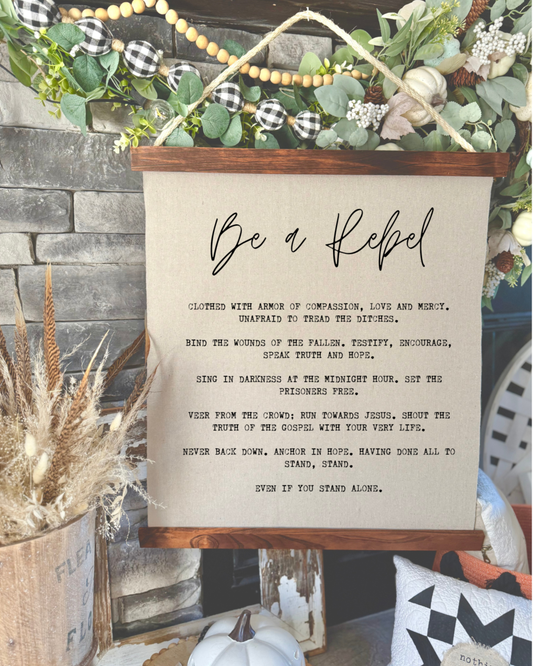 Be a Rebel
CLOTHED WITH ARMOR OF COMPASSION, LOVE AND MERCY.
UNAFRAID TO TREAD THE DITCHES.
BIND THE WOUNDS OF THE FALLEN. TESTIFY, ENCOURAGE,
SPEAK TRUTH AND HOPE.
SING IN DARKNESS AT THE MIDNIGHT HOUR. SET THE
PRISONERS FREE.
VEER FROM THE CROWD; RUN TOWARDS JESUS. SHOUT THE
TRUTH OF THE GOSPEL WITH YOUR VERY LIFE.
NEVER BACK DOWN. ANCHOR IN HOPE. HAVING DONE ALL TO
STAND, STAND.
EVEN IF YOU STAND ALONE.
FLEA
noth